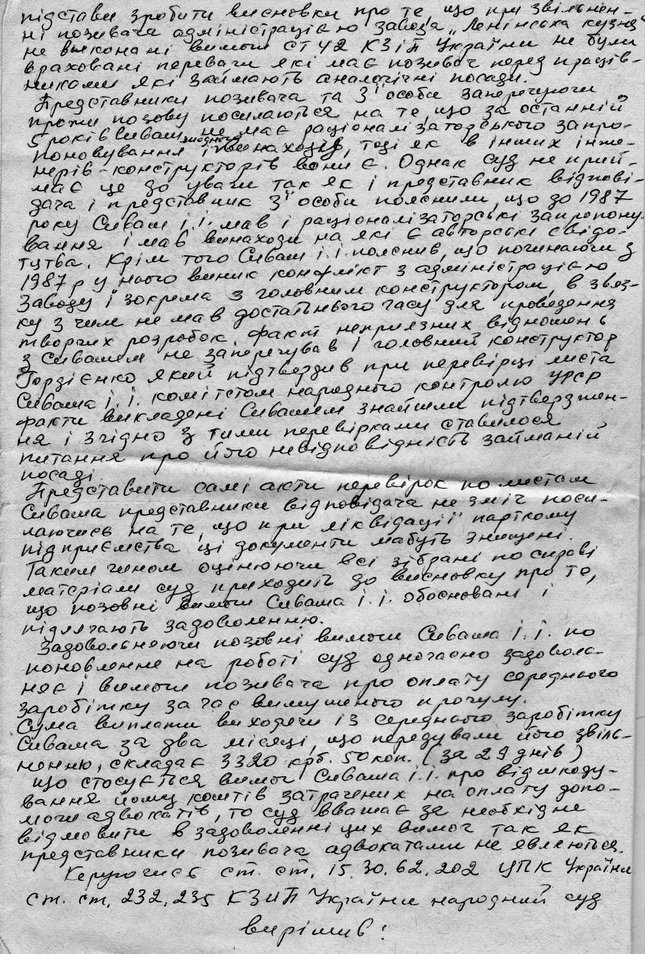 підстави зробити висновки про те, що при звільнен-
ні позивача адміністрацією завода „Ленінська кузня"
не виконані вимоги ст 42 КЗіП України не були
враховані переваги які має позивач перед праців-
никами які займають аналогічні посади.
Представники позивача та 3ї особи заперечуючи
проти позову посилаються на те, що за останній
5 років Сиваш не має раціоналізаторського запро-
понування і винаходів, тоді як в інших інже-
нерів-конструкторів вони є. Однак суд не прий-
має це до уваги так як і представник відпові-
дача і представник 3ї особи пояснили, що до 1987
року Сиваш і.і. мав і раціоналізаторські запропону-
вання і мав винаходи на які є авторські свідо-
цтва. Крім того Сиваш і.і. пояснив, що починаючи з
1987 р у нього виник конфлікт з адміністрацією
заводу і зокрема з головним конструктором, в звяз-
ку з чим не мав достатнього часу для проведення
творчих розробок. Факт неприязних відношень
з Сивашем не заперечував і головний конструктор
Гордієнко який підтвердив при перевірці листа
Сиваша і.і. комітетом народного контролю УРСР
факти викладені Сивашем знайшли підтверджен-
ня і згідно з тими перевірками ставилося
питання про його невідповідність займаній
посаді.
Представити самі акти перевірок по листам
Сиваша представники відповідача не зміг поси-
лаючись на те, що при ліквідації парткому
підприємства ці документи мабуть знищені.
Таким чином оцінюючи всі зібрані по справі
матеріали суд приходить до висновку про те,
що позовні вимоги Сиваша і.і. обосновані і
підлягають задоволенню.
Задовольняючи позовні вимоги Сиваша і.і. по
поновленне на роботі суд одночасно задоволь-
няє і вимоги позивача про оплату середнього
заробітку за час вимушеного прогулу.
Сума виплати виходячи із середнього заробітку
Сиваша за два місяці, що передували його звіль-
ненню, складає 3320 крб. 50 коп. (за 29 днів)
що стосується вимог Сиваша і.і. про відшкоду-
вання йому коштів затрачених на оплату допо-
моги адвокатів, то суд вважає за необхідне
відмовити в задоволенні цих вимог так як
представники позивача адвокатами не являються.
Керуючись ст. ст. 15. 30. 62. 202 ЦПК України
ст. ст. 232, 235 КЗиП України народний суд
вирішив: